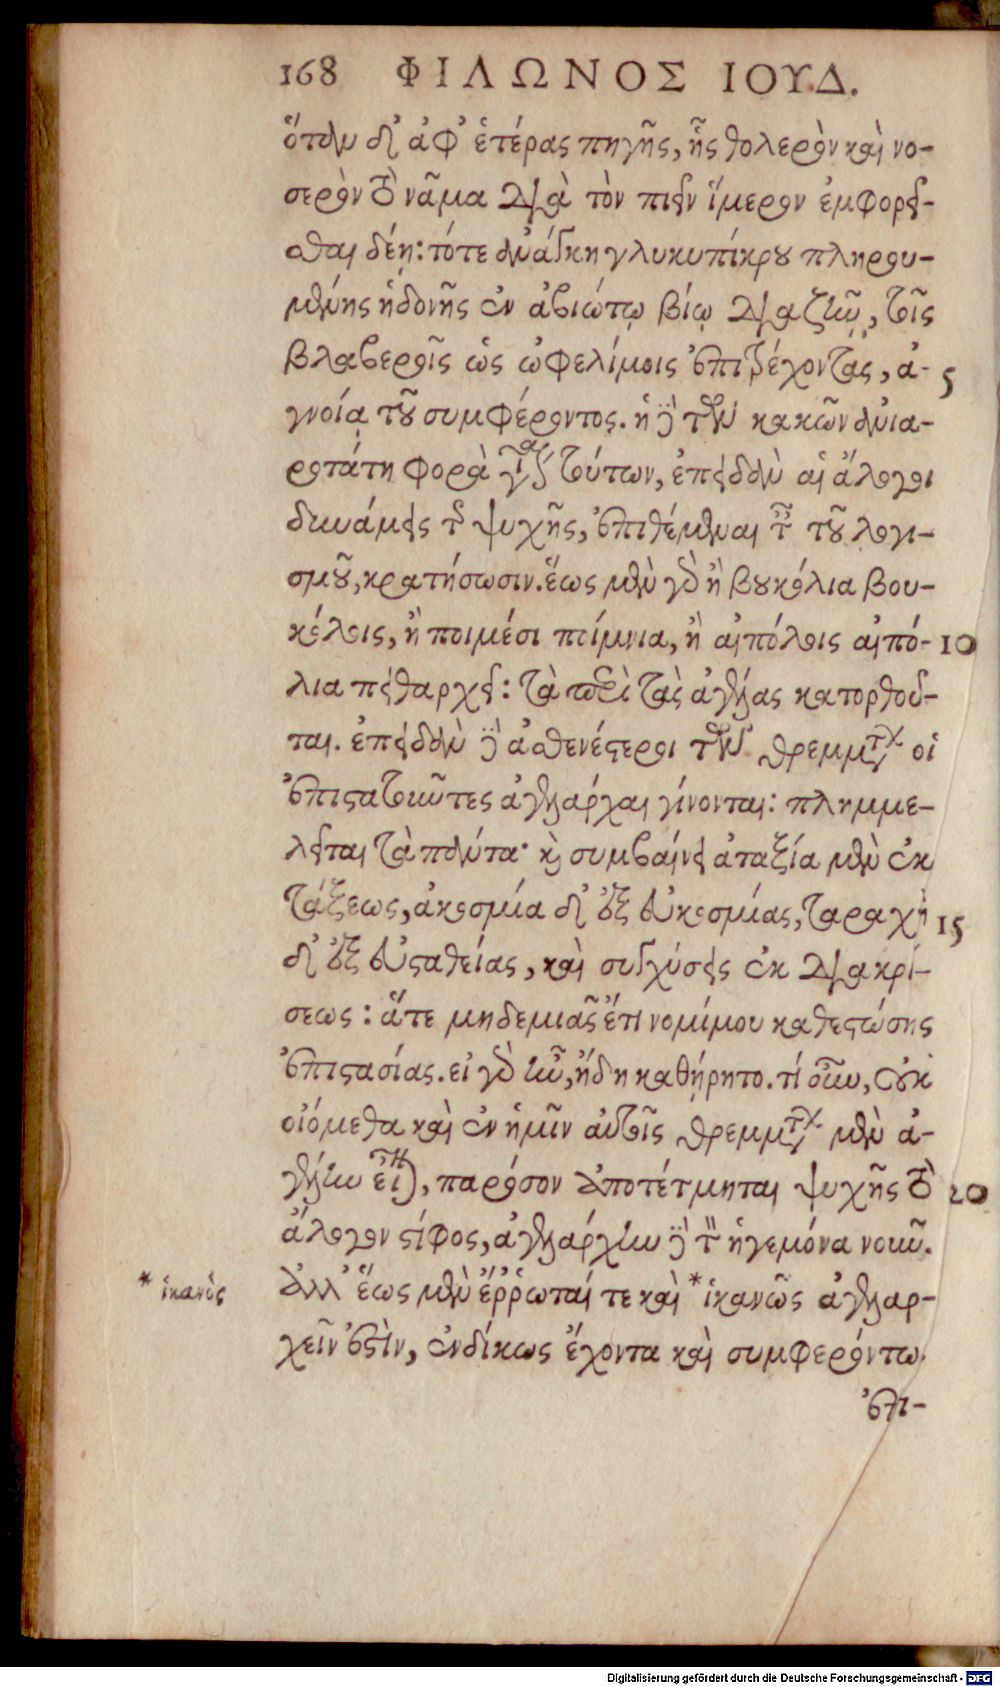 168 ΦΙΛΩΝΟΣ ΙΟΥΔ.
ὅταν δ' ἀφ' ἑτέρας πηγῆς, ἧς θολερὸν καὶ νο-
σερὸν τὸ νᾶμα διὰ τὸν πιεῖν ἵμερον ἐμφορεῖ-
σθαι δέῃ: τότε ἀνάγκη γλυκυπίκρου πληρου-
μένης ἡδονῆς ἐν ἀβιώτῳ βίῳ διαζῆν, τοῖς
βλαβεροῖς ὡς ὠφελίμοις ἐπιτρέχοντας, ἀ- 5
γνοίᾳ τοῦ συμφέροντος. ἡ δὲ τῶν κακῶν ἀνια-
ροτάτη φορὰ γίνεται τούτων, ἐπειδὰν αἱ ἄλογοι
δυνάμεις τῆς ψυχῆς, ἐπιθέμεναι ταῖς τοῦ λογι-
σμοῦ, κρατήσωσιν. ἕως μὲν γὰρ ἢ βουκόλια βου-
κόλοις, ἢ ποιμέσι ποίμνια, ἢ αἰπόλοις αἰπό- 10
λια πειθαρχεῖ: τὰ περὶ τὰς ἀγέλας κατορθοῦ-
ται. ἐπειδὰν δὲ ἀσθενέστεροι τῶν θρεμμάτων οἱ
ἐπιστατοῦντες ἀγελάρχαι γίνονται: πλημμε-
λεῖται τὰ πάντα· καὶ συμβαίνει ἀταξία μὲν ἐκ
τάξεως, ἀκοσμία δ' ἐξ εὐκοσμίας, ταραχὴ 15
δ' ἐξ εὐσταθείας, καὶ σύγχυσις ἐκ διακρί-
σεως: ἅτε μηδεμιᾶς ἔτι νομίμου καθεστώσης
ἐπιστασίας. εἰ γὰρ ἦν, ἤδη καθῄρητο. τί οὖν, οὐκ
οἰόμεθα καὶ ἐν ἡμῖν αὐτοῖς θρεμμάτων μὲν ἀ-
γέλην εἶναι, παρόσον ἀποτέτμηται ψυχῆς τὸ 20
ἄλογον στίφος, ἀγελάρχην δὲ τὸν ἡγεμόνα νοῦν.
Ἀλλ' ἕως μὲν ἔῤῥωταί τε καὶ *ἱκανῶς ἀγελαρ-
χεῖν ἐστὶν, ἐνδίκως ἔχοντα καὶ συμφερόντως
ἐπι-
* ἱκανὸς
Digitalisierung gefördert durch die Deutsche Forschungsgemeinschaft - DFG